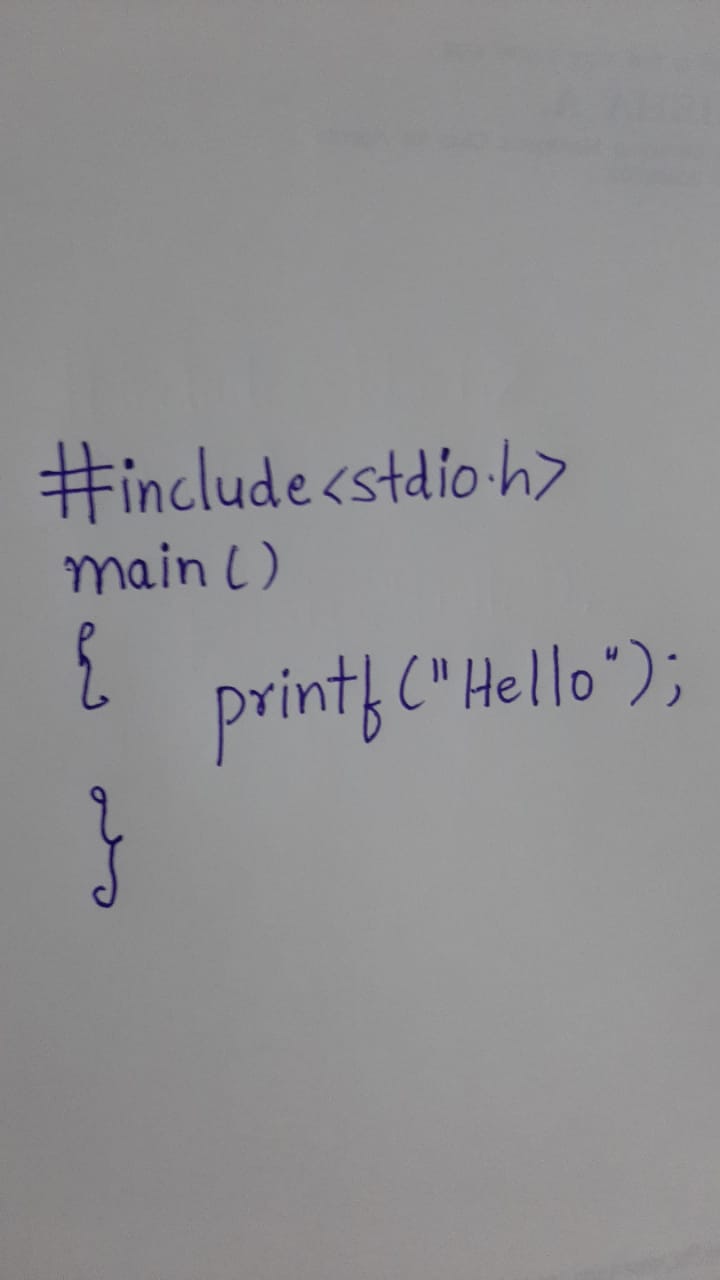 #include<stdio.h>
main()
{ printf("Hello");
}